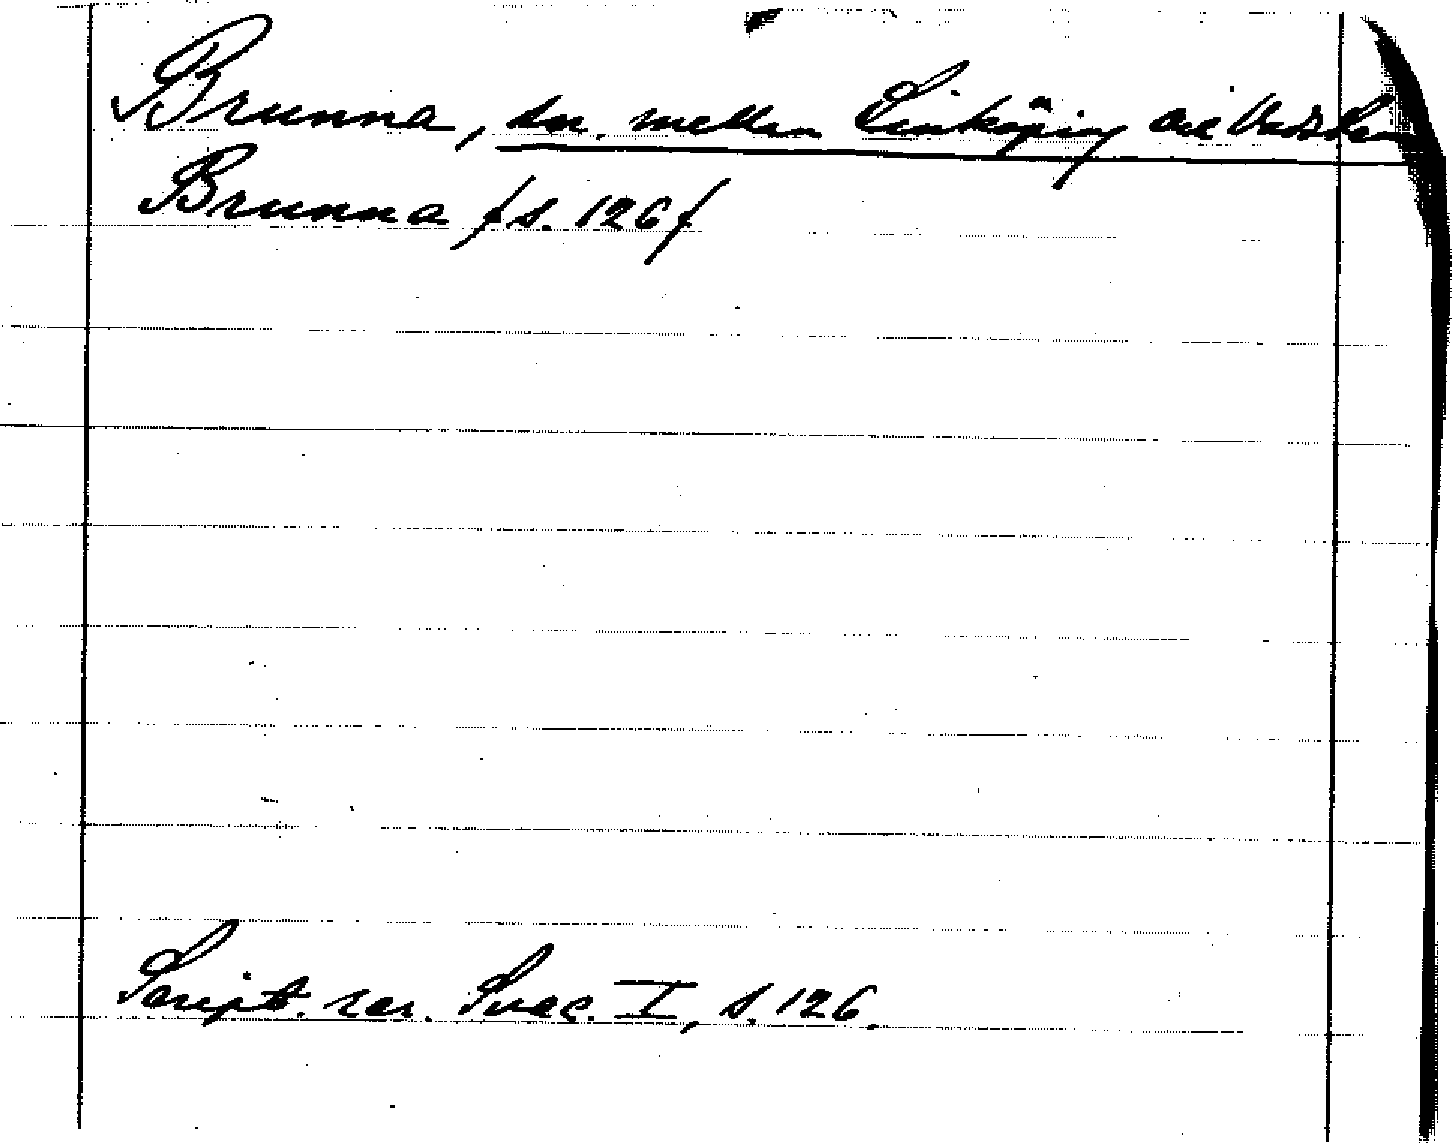 Brunna, sn. mellan Linköping och Vadstena
Brunna /s. 126/
Script. rer. Svec. I, s. 126.